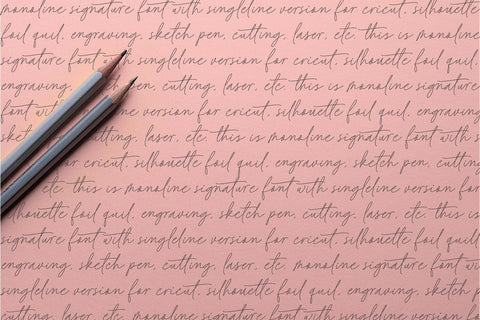 monoline signature font with singleline version for cricut, silhouette
foil quil, engraving, sketch pen, cutting, laser, etc. this is monoline
signature font with singleline version for cricut, silhouette foil quil,
engraving, cutting, laser, etc. this is monoline signature
font w version for cricut, silhouette foil quil, engraving
ske cutting, laser, etc. this is monoline signature font with
r cricut, silhouette foil quil, engraving, sketch pen, cutting,
etc. this is monoline signature font with singleline version for
silhouette foil quil, engraving, sketch pen, cutting, laser, etc.
signature font with singleline version for cricut, silhouette foil quill
engraving, sketch pen, cutting, laser, etc. monoline signature font with
singleline version for cricut, silhouette foil quil, engraving, sketch pen,
cutting, laser, etc. this is monoline signature font with singleline